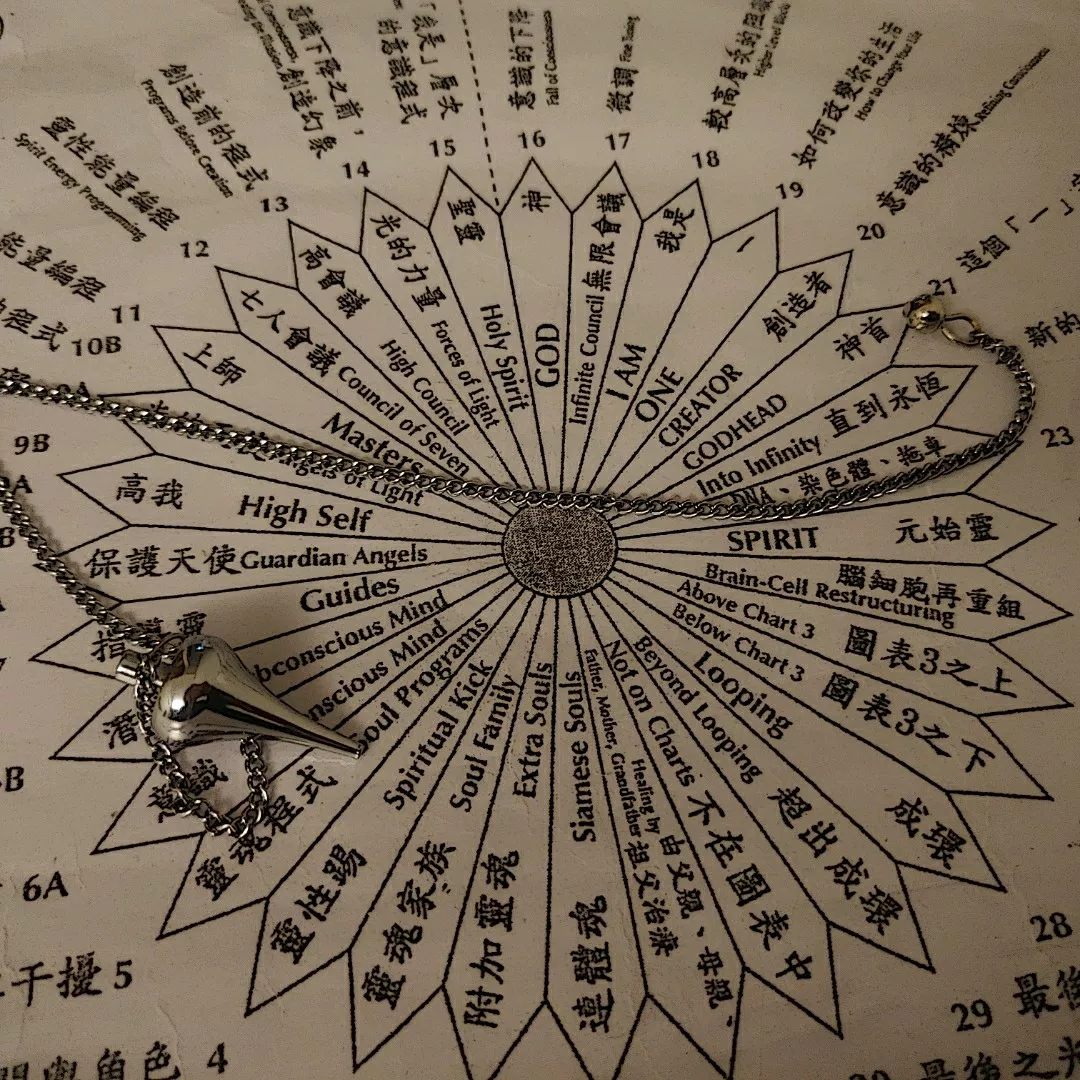 意識下降之前，
創造幻象
「我是」層次
的意識程式
意識的下降
Fall of Consciousness
微調 Fine Tuning
較高層次的阻礙
Higher Level Block
如何改變你的生活
How to Change Your Life
意識的精煉 Refining Consciousness
這個「一」
新的
創造前的程式
Programs Before Creation
靈性能量編程
Spirit Energy Programming
能量編程
程式
10B
11
12
13
14
15
16
17
18
19
20
21
23
9A
9B
6A
干擾 5
角色 4
28
29 最後
最後之光
神
GOD
無限會議
Infinite Council
我是
I AM
一
ONE
創造者
CREATOR
神首
GODHEAD
直到永恆
Into Infinity
DNA、染色體、拖車
元始靈
SPIRIT
腦細胞再重組
Brain-Cell Restructuring
圖表3之上
Above Chart 3
圖表3之下
Below Chart 3
成環
Looping
超出成環
Beyond Looping
不在圖表中
Not on Charts
由父親、母親、
祖父治療
Healing by
Father, Mother, Grandfather
連體魂
Siamese Souls
附加靈魂
Extra Souls
靈魂家族
Soul Family
靈性踢
Spiritual Kick
靈魂程式
Soul Programs
意識
nscious Mind
潛
bconscious Mind
指導靈
Guides
保護天使
Guardian Angels
高我
High Self
Angels of Light
上師
Masters
七人會議
Council of Seven
高會議
High Council
光的力量
Forces of Light
聖靈
Holy Spirit